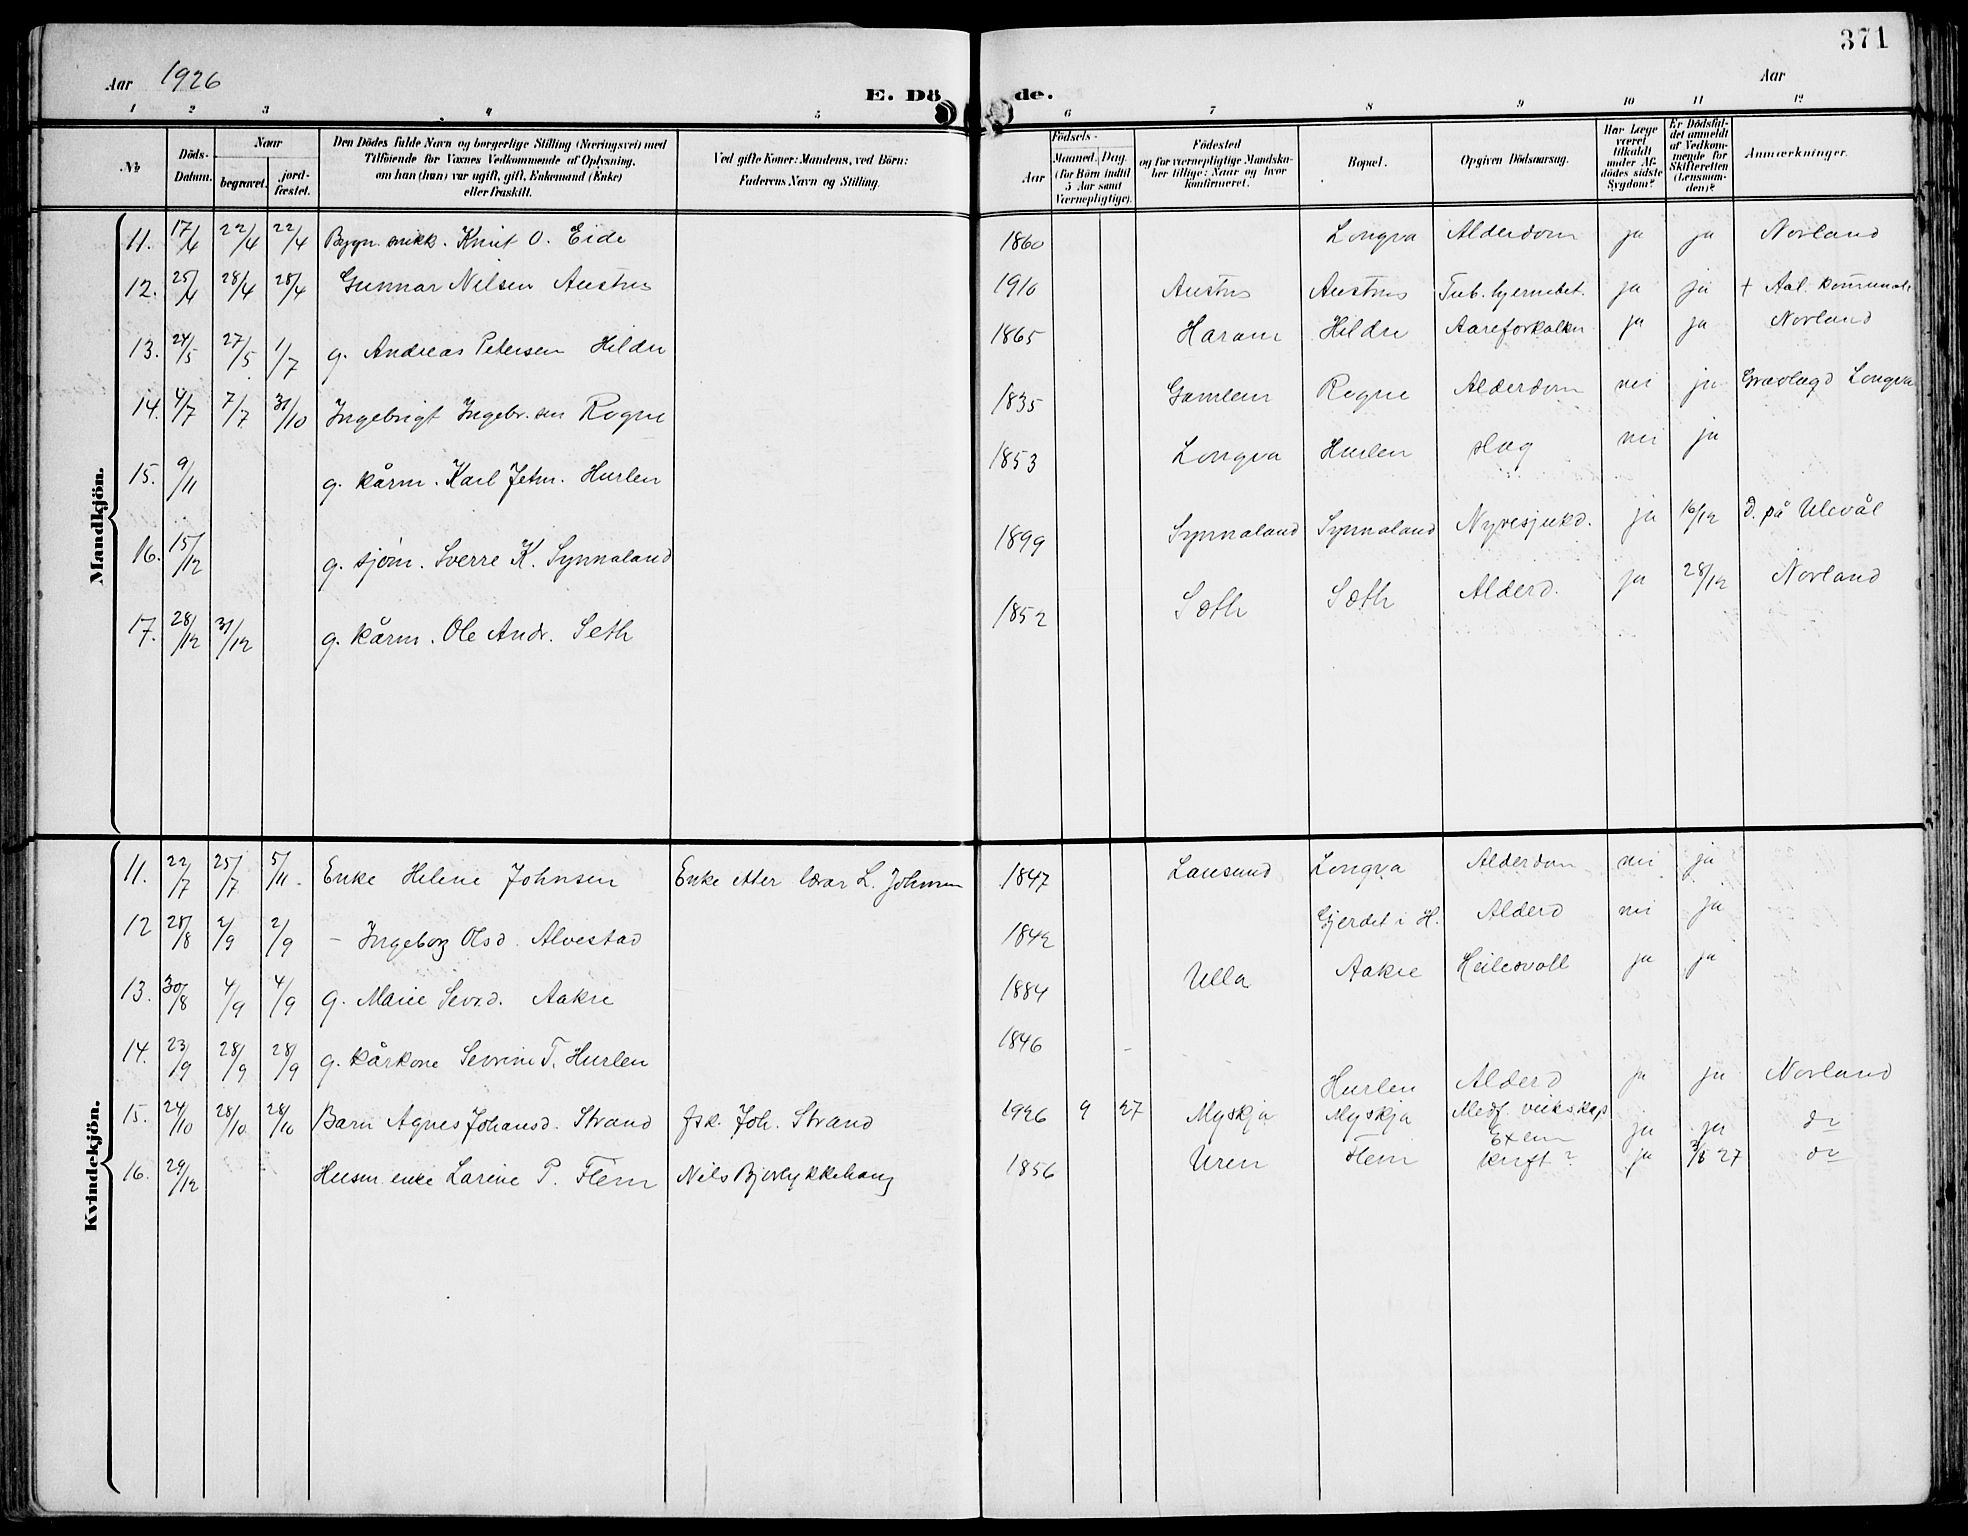 371
Aar 1926
E. Dö de.
Aar
1 2 3 4 5 6 7 8 9 10 11 12
No
Döds-Datum.
Naar
begravet.
jord-fæstet.
Den Dödes fulde Navn og borgerlige Stilling (Næringsvei) med
Tilföiende for Voxnes Vedkommende af Oplysning,
om han (hun) var ugift, gift, Enkemand (Enke)
eller fraskilt.
Ved gifte Koner: Mandens, ved Börn:
Faderens Navn og Stilling.
Födsels-
Aar
Maaned. Dag
(for Börn indtil
5 Aar samt
Værnepligtige).
Födested
og for værnepligtige Mandska-
ber tillige: Naar og hvor
konfirmeret.
Bopæl.
Opgiven Dödsaarsag.
Har Læge
været
tilkaldt
under Af-
dödes sidste
Sygdom?
Er Dödsfal-
det anmeldt
af Vedkom-
mende for
Skifteretten
(Lensman-
den)?
Anmærkninger.
Mandkjön.
11. 17/4 22/4 22/4 Bygn. snikk. Knut O. Eide 1860 Longva Alderdom ja ja Norland
12. 25/4 28/4 28/4 Gunnar Nilsen Austnes 1910 Austnes Austnes Tub. hjernebet. ja ja + Aal. kommunale
13. 24/5 27/5 1/7 g. Andreas Petersen Hildre 1865 Haram Hildre Aareforkalkn. ja ja Norland
14. 4/7 7/7 31/10 Ingebrigt Ingebr.sen Rogne 1835 Gamlem Rogne Alderdom nei ja Gravlagd Longva
15. 9/11 g. kårm. Karl Jetm. Hurlen 1853 Longva Hurlen slag nei ja
16. 15/12 g. sjøm. Sverre K. Synnaland 1899 Synnaland Synnaland Nyresjukd. ja 16/12 D. på Ulevål
17. 28/12 31/12 g. kårm. Ole Andr. Seth 1852 Sæth Sæth Alderd. ja 28/12 Norland
Kvindekjön.
11. 22/7 25/7 5/11. Enke Helene Johnsen Enke etter lærar L. Johnsen 1847 Lausund Longva Alderdom nei ja
12 28/8 2/9 2/9 – Ingeborg Olsd. Alvestad 1842 Gjerdet i H. Alderd nei ja
13. 30/8 4/9 4/9 g. Marie Sevrd. Aakre 1884 Ulla Aakre Heilesvoll ja ja
14. 23/9 28/9 28/9 g. kårkone Sevrine T. Hurlen 1846 Hurlen Alderd ja ja Norland
15. 24/10 28/10 28/10 Barn Agnes Johansd. Strand fsk. Joh. Strand 1926 9 27 Myskja Myskja Medf. veikskap Exem ja ja do
16. 29/12 Husm. enke Larine P. Flem Nils Bjørlykkehaug 1856 Uren Flem kreft? ja 3/8 27 do